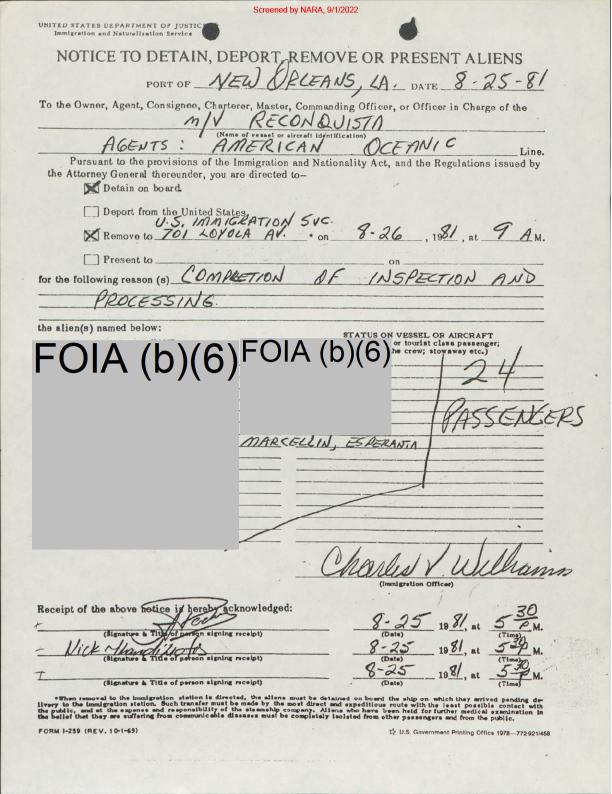 Screened by NARA, 9/1/2022
UNITED STATES DEPARTMENT OF JUSTIC
Immigration and Naturalization Service
NOTICE TO DETAIN, DEPORT, REMOVE OR PRESENT ALIENS
PORT OF NEW ORLEANS, LA. DATE 8-25-81
To the Owner, Agent, Consignee, Charterer, Master, Commanding Officer, or Officer in Charge of the
M/V RECONQUISTA
(Name of vessel or aircraft identification)
AGENTS: AMERICAN OCEANIC Line.
Pursuant to the provisions of the Immigration and Nationality Act, and the Regulations issued by
the Attorney General thereunder, you are directed to—
Detain on board
Deport from the United States,
U.S. IMMIGRATION SVC.
Remove to 701 LOYOLA AV. * on 8-26, 1981, at 9 A M.
Present to on
for the following reason (s) COMPLETION OF INSPECTION AND
PROCESSING.
the alien(s) named below:
STATUS ON VESSEL OR AIRCRAFT
or tourist class passenger;
he crew; stowaway etc.)
FOIA (b)(6) FOIA (b)(6)
24
PASSENGERS
MARCELLIN, ESPERANTA
Charles V. Williams
(Immigration Officer)
Receipt of the above notice is hereby acknowledged:
8-25 1981, at 5 30 P M.
(Signature & Title of person signing receipt) (Date) (Time)
Nick 8-25 1981, at 5 30 P M.
(Signature & Title of person signing receipt) (Date) (Time)
8-25 1981, at 5 30 P M.
(Signature & Title of person signing receipt) (Date) (Time)
*When removal to the immigration station is directed, the aliens must be detained on board the ship on which they arrived pending de-
livery to the immigration station. Such transfer must be made by the most direct and expeditious route with the least possible contact with
the public, and at the expense and responsibility of the steamship company. Aliens who have been held for further medical examination in
the belief that they are suffering from communicable diseases must be completely isolated from other passengers and from the public.
FORM I-259 (REV. 10-1-69)
☆ U.S. Government Printing Office 1978—772-921/458